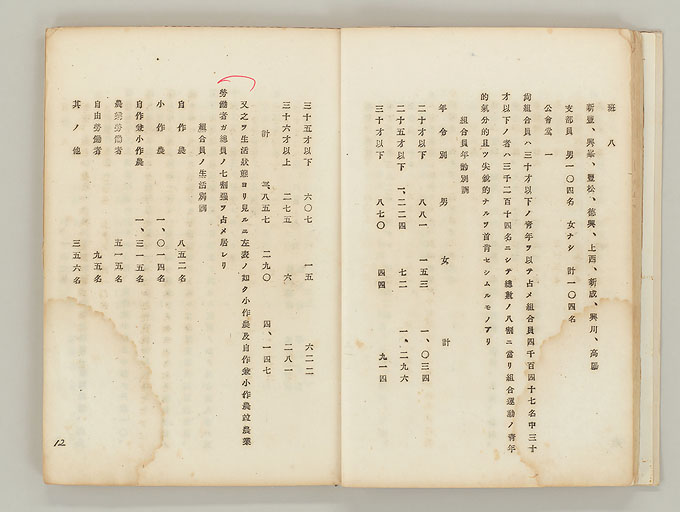 班 八
新豊、興峯、豊松、徳興、上西、新成、興川、高陽
支部員 男一〇四名 女ナシ 計一〇四名
公會堂 一
尚組合員ハ三十才以下ノ青年ヲ以テ占メ組合員四千百四十七名中三十
才以下ノ者ハ三千二百十四名ニシテ總數ノ八割ニ當リ組合運動ノ青年
的氣分的且ツ尖鋭的ナルヲ首肯セシムルモノアリ
組合員年齡別調
年令別 男 女 計
二十才以下 八八一 一五三 一、〇三四
二十五才以下 一、二二四 七二 一、二九六
三十才以下 八七〇 四四 九一四
三十五才以下 六〇七 一五 六二二
三十六才以上 二七五 六 二八一
計 三、八五七 二九〇 四、一四七
又之ヲ生活狀態ヨリ見ルニ左表ノ如ク小作農及自作兼小作農竝農業
勞働者ガ總員ノ七割强ヲ占メ居レリ
組合員ノ生活別調
自作農 八五二名
小作農 一、〇一四名
自作兼小作農 一、三一五名
農業勞働者 五一五名
自由勞働者 九五名
其ノ他 三五六名
12